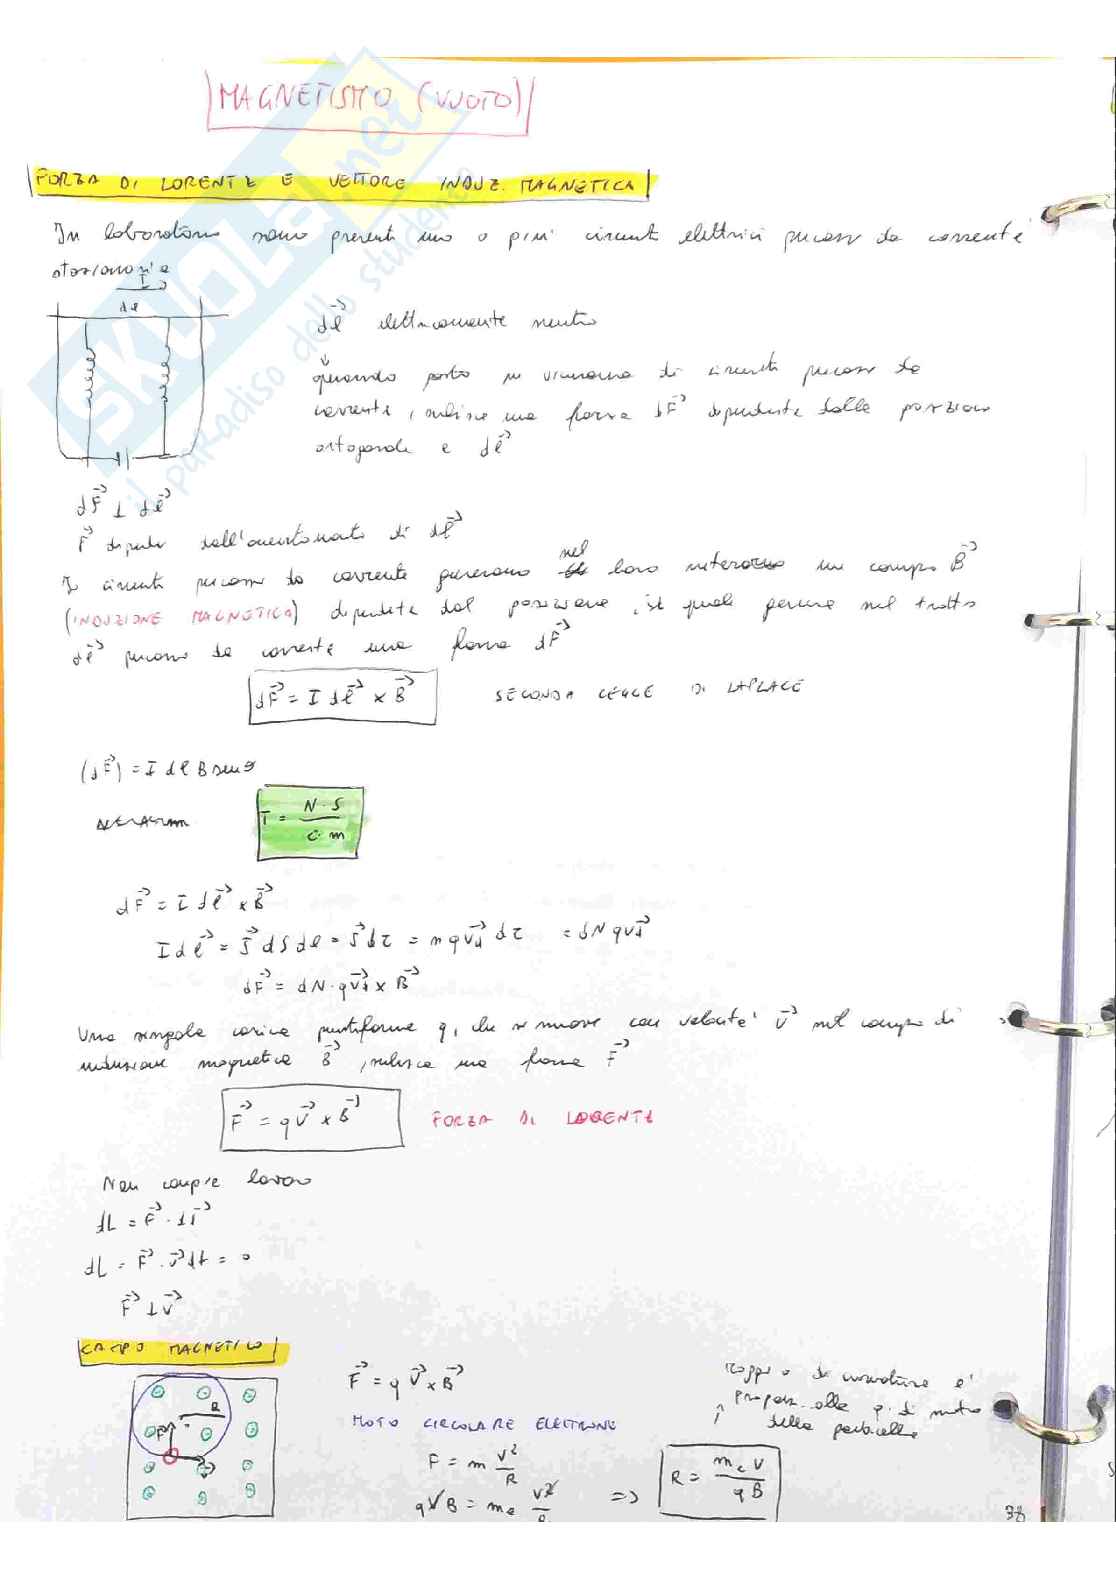 MAGNETISMO (VUOTO)
FORZA DI LORENTZ E VETTORE INDUZ. MAGNETICA
In laboratorio sono presenti uno o più circuiti elettrici percorsi da corrente
stazionaria
I
dl
dl⃗ elettricamente neutro
↓
quando posto in vicinanza di circuiti percorsi da
corrente, subisce una forza dF⃗ dipendente dalla posizione
ortogonale a dl⃗
dF⃗ ⊥ dl⃗
F⃗ dipende dall'orientamento di dl⃗
I circuiti percorsi da corrente generano nel loro un campo B⃗
(INDUZIONE MAGNETICA) dipendente dal posizione, il quale nel tratto
dl⃗ percorso da corrente una forza dF⃗
dF⃗ = I dl⃗ × B⃗ SECONDA LEGGE DI LAPLACE
(dF⃗) = I dl B senθ
T = N·S / C·m
dF⃗ = I dl⃗ × B⃗
I dl⃗ = J⃗ dS dl = J⃗ dτ = n q v⃗d dτ = dN q v⃗d
dF⃗ = dN · q v⃗d × B⃗
Una singola carica puntiforme q, che si muove con velocità v⃗ nel campo di
induzione magnetica B⃗, subisce una forza F⃗
F⃗ = q v⃗ × B⃗ FORZA DI LORENTZ
Non compie lavoro
dL = F⃗ · dr⃗
dL = F⃗ · v⃗ dt = 0
F⃗ ⊥ v⃗
CAMPO MAGNETICO
R
F
F⃗ = q v⃗ × B⃗
MOTO CIRCOLARE ELETTRONE
F = m v²/R
q v B = me v²/R => R = me v / q B
raggio di curvatura è
propor. alla q. di moto
della particella
38
SKUOLA.net
il paradiso dello studente